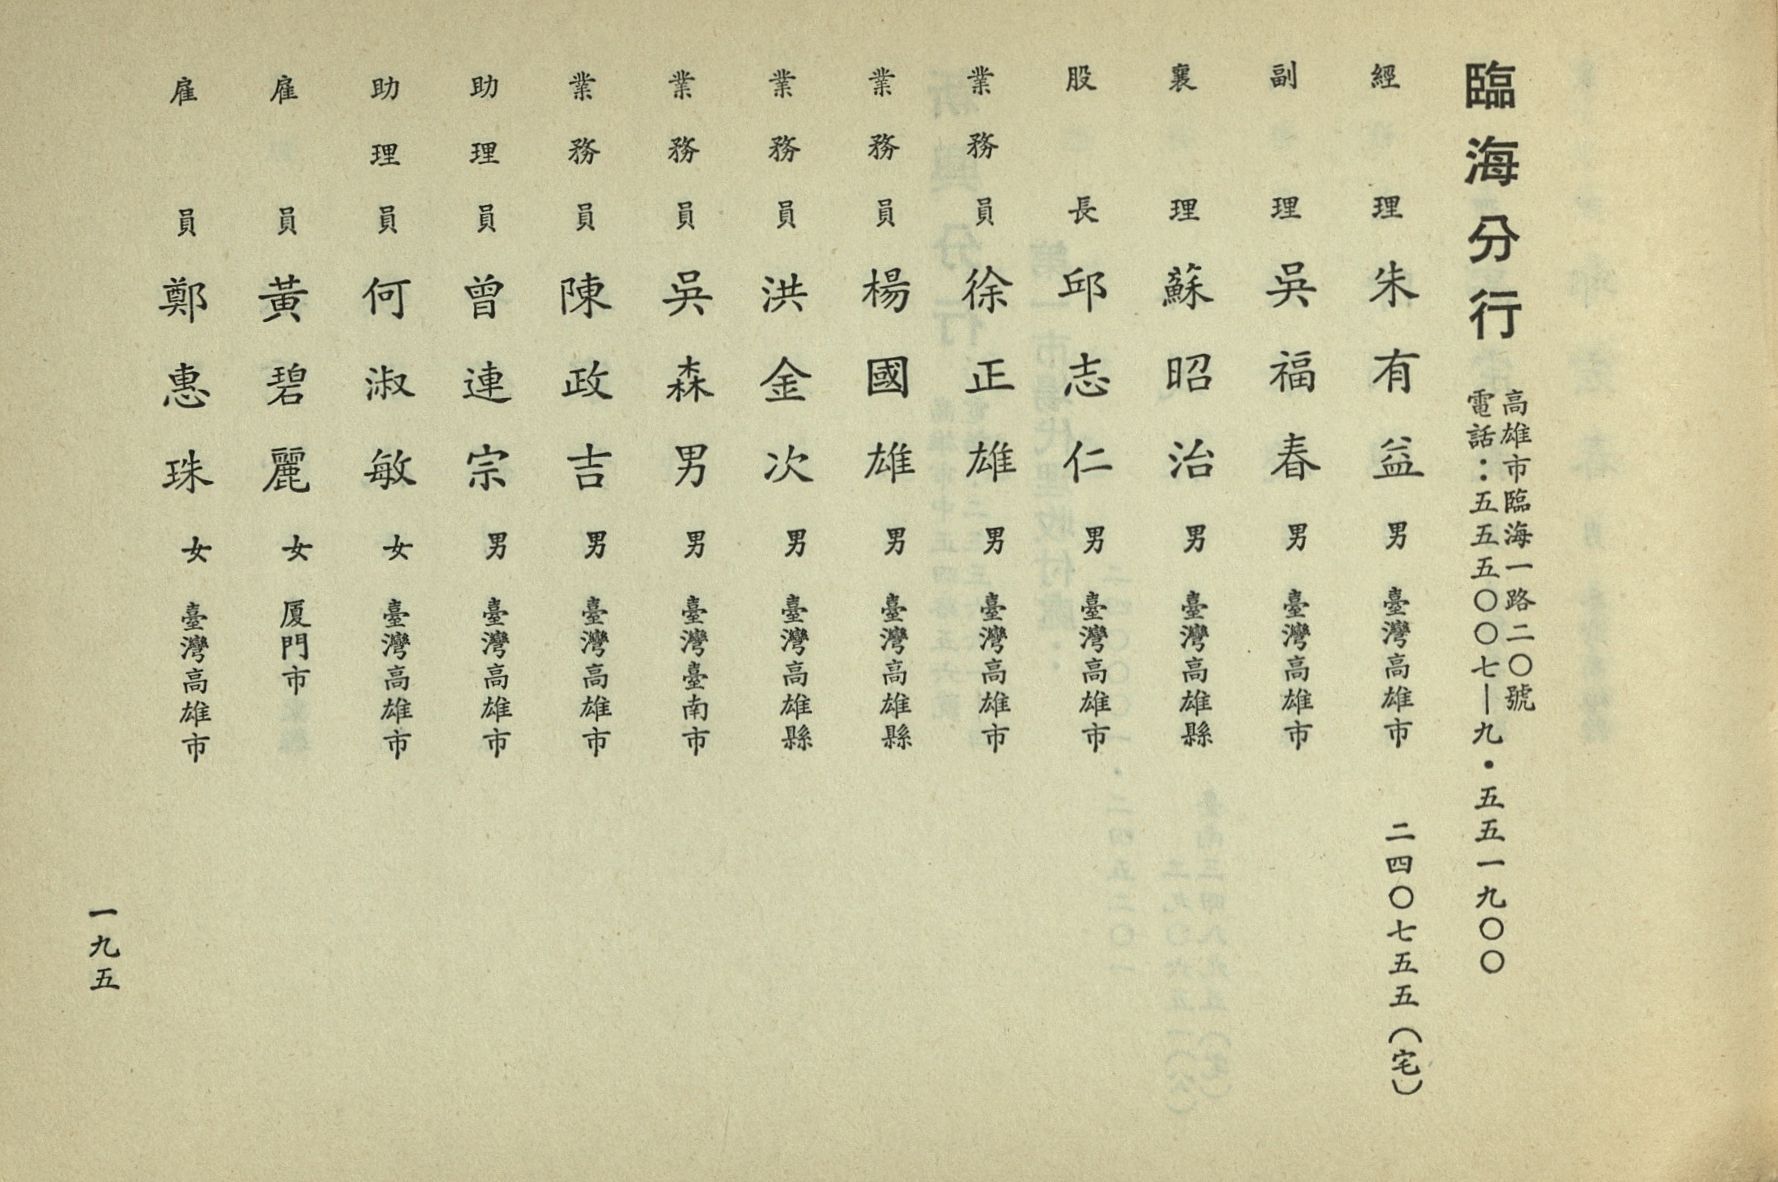 臨海分行
高雄市臨海一路二〇號
電話：五五五〇〇七—九・五五一九〇〇
經理 朱有益 男 臺灣高雄市 二四〇七五五（宅）
副理 吳福春 男 臺灣高雄市
襄理 蘇昭治 男 臺灣高雄縣
股長 邱志仁 男 臺灣高雄市
業務員 徐正雄 男 臺灣高雄市
業務員 楊國雄 男 臺灣高雄縣
業務員 洪金次 男 臺灣高雄縣
業務員 吳森男 男 臺灣臺南市
業務員 陳政吉 男 臺灣高雄市
助理員 曾連宗 男 臺灣高雄市
助理員 何淑敏 女 臺灣高雄市
雇員 黃碧麗 女 厦門市
雇員 鄭惠珠 女 臺灣高雄市
一九五